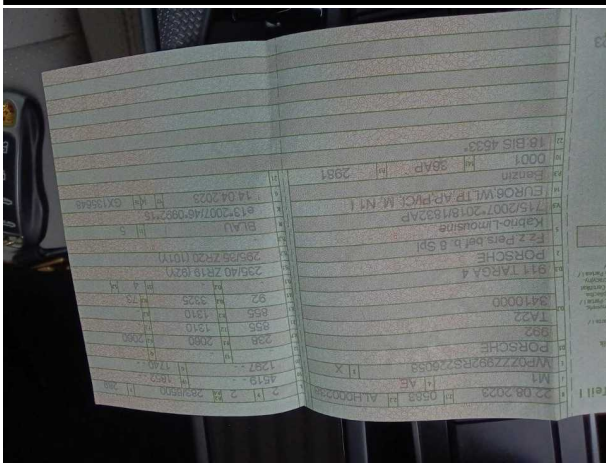 22.08.2023 0583 ALH00023
M1 AE
WP0ZZZ992RS226058 X
PORSCHE
992
TA22
3410000
911 TARGA 4
PORSCHE
Fz.z.Pers.bef.b. 8 Spl.
Kabrio-Limousine
715/2007*2018/1832AP
EURO6 WLTP AP;PI/CI, M, N1 I
Benzin
0001 36AP 2981
18 BIS 4533*
2 2 283/6500 289
4519 1852
1297 1740
238 2060 2060
855 1310
855 1310
92 3325 73
- - 4
235/40 ZR19 (92Y)
295/35 ZR20 (101Y)
BLAU 5
e13*2007/46*0992*15
14.04.2023 GX135648
Teil I